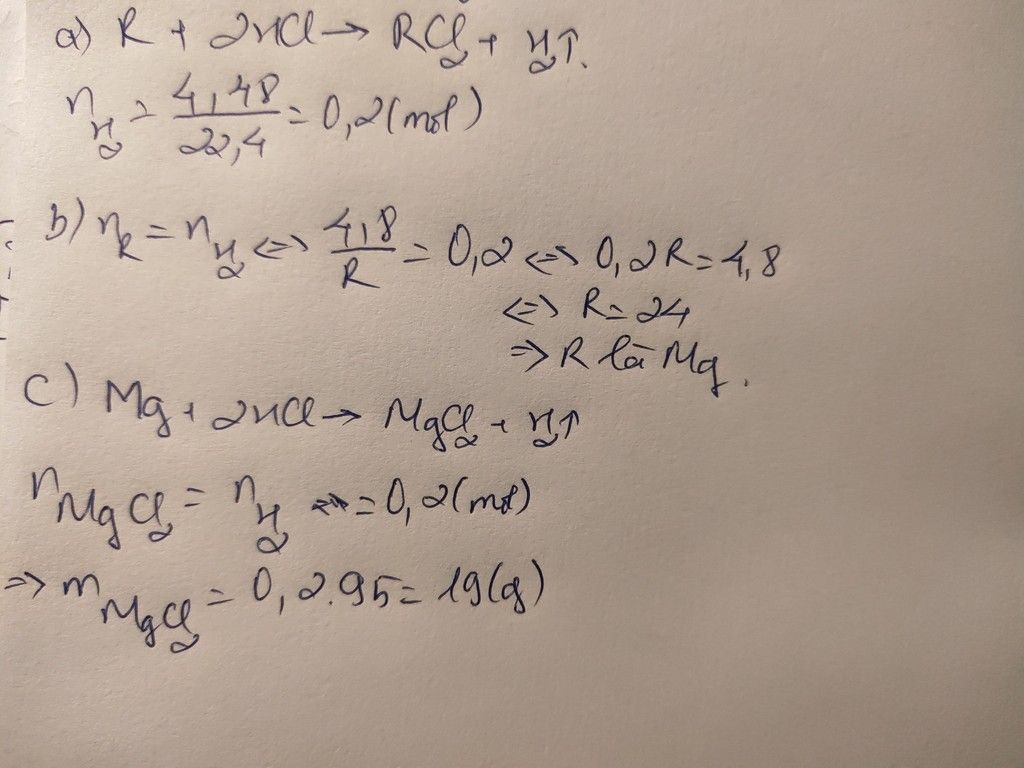 a) R + 2HCl → RCl₂ + H₂↑.
n_H₂ = 4,48/22,4 = 0,2 (mol)
b) n_R = n_H₂ <=> 4,8/R = 0,2 <=> 0,2R = 4,8
<=> R = 24
=> R là Mg.
c) Mg + 2HCl → MgCl₂ + H₂↑
n_MgCl₂ = n_H₂ = 0,2 (mol)
=> m_MgCl₂ = 0,2.95 = 19 (g)